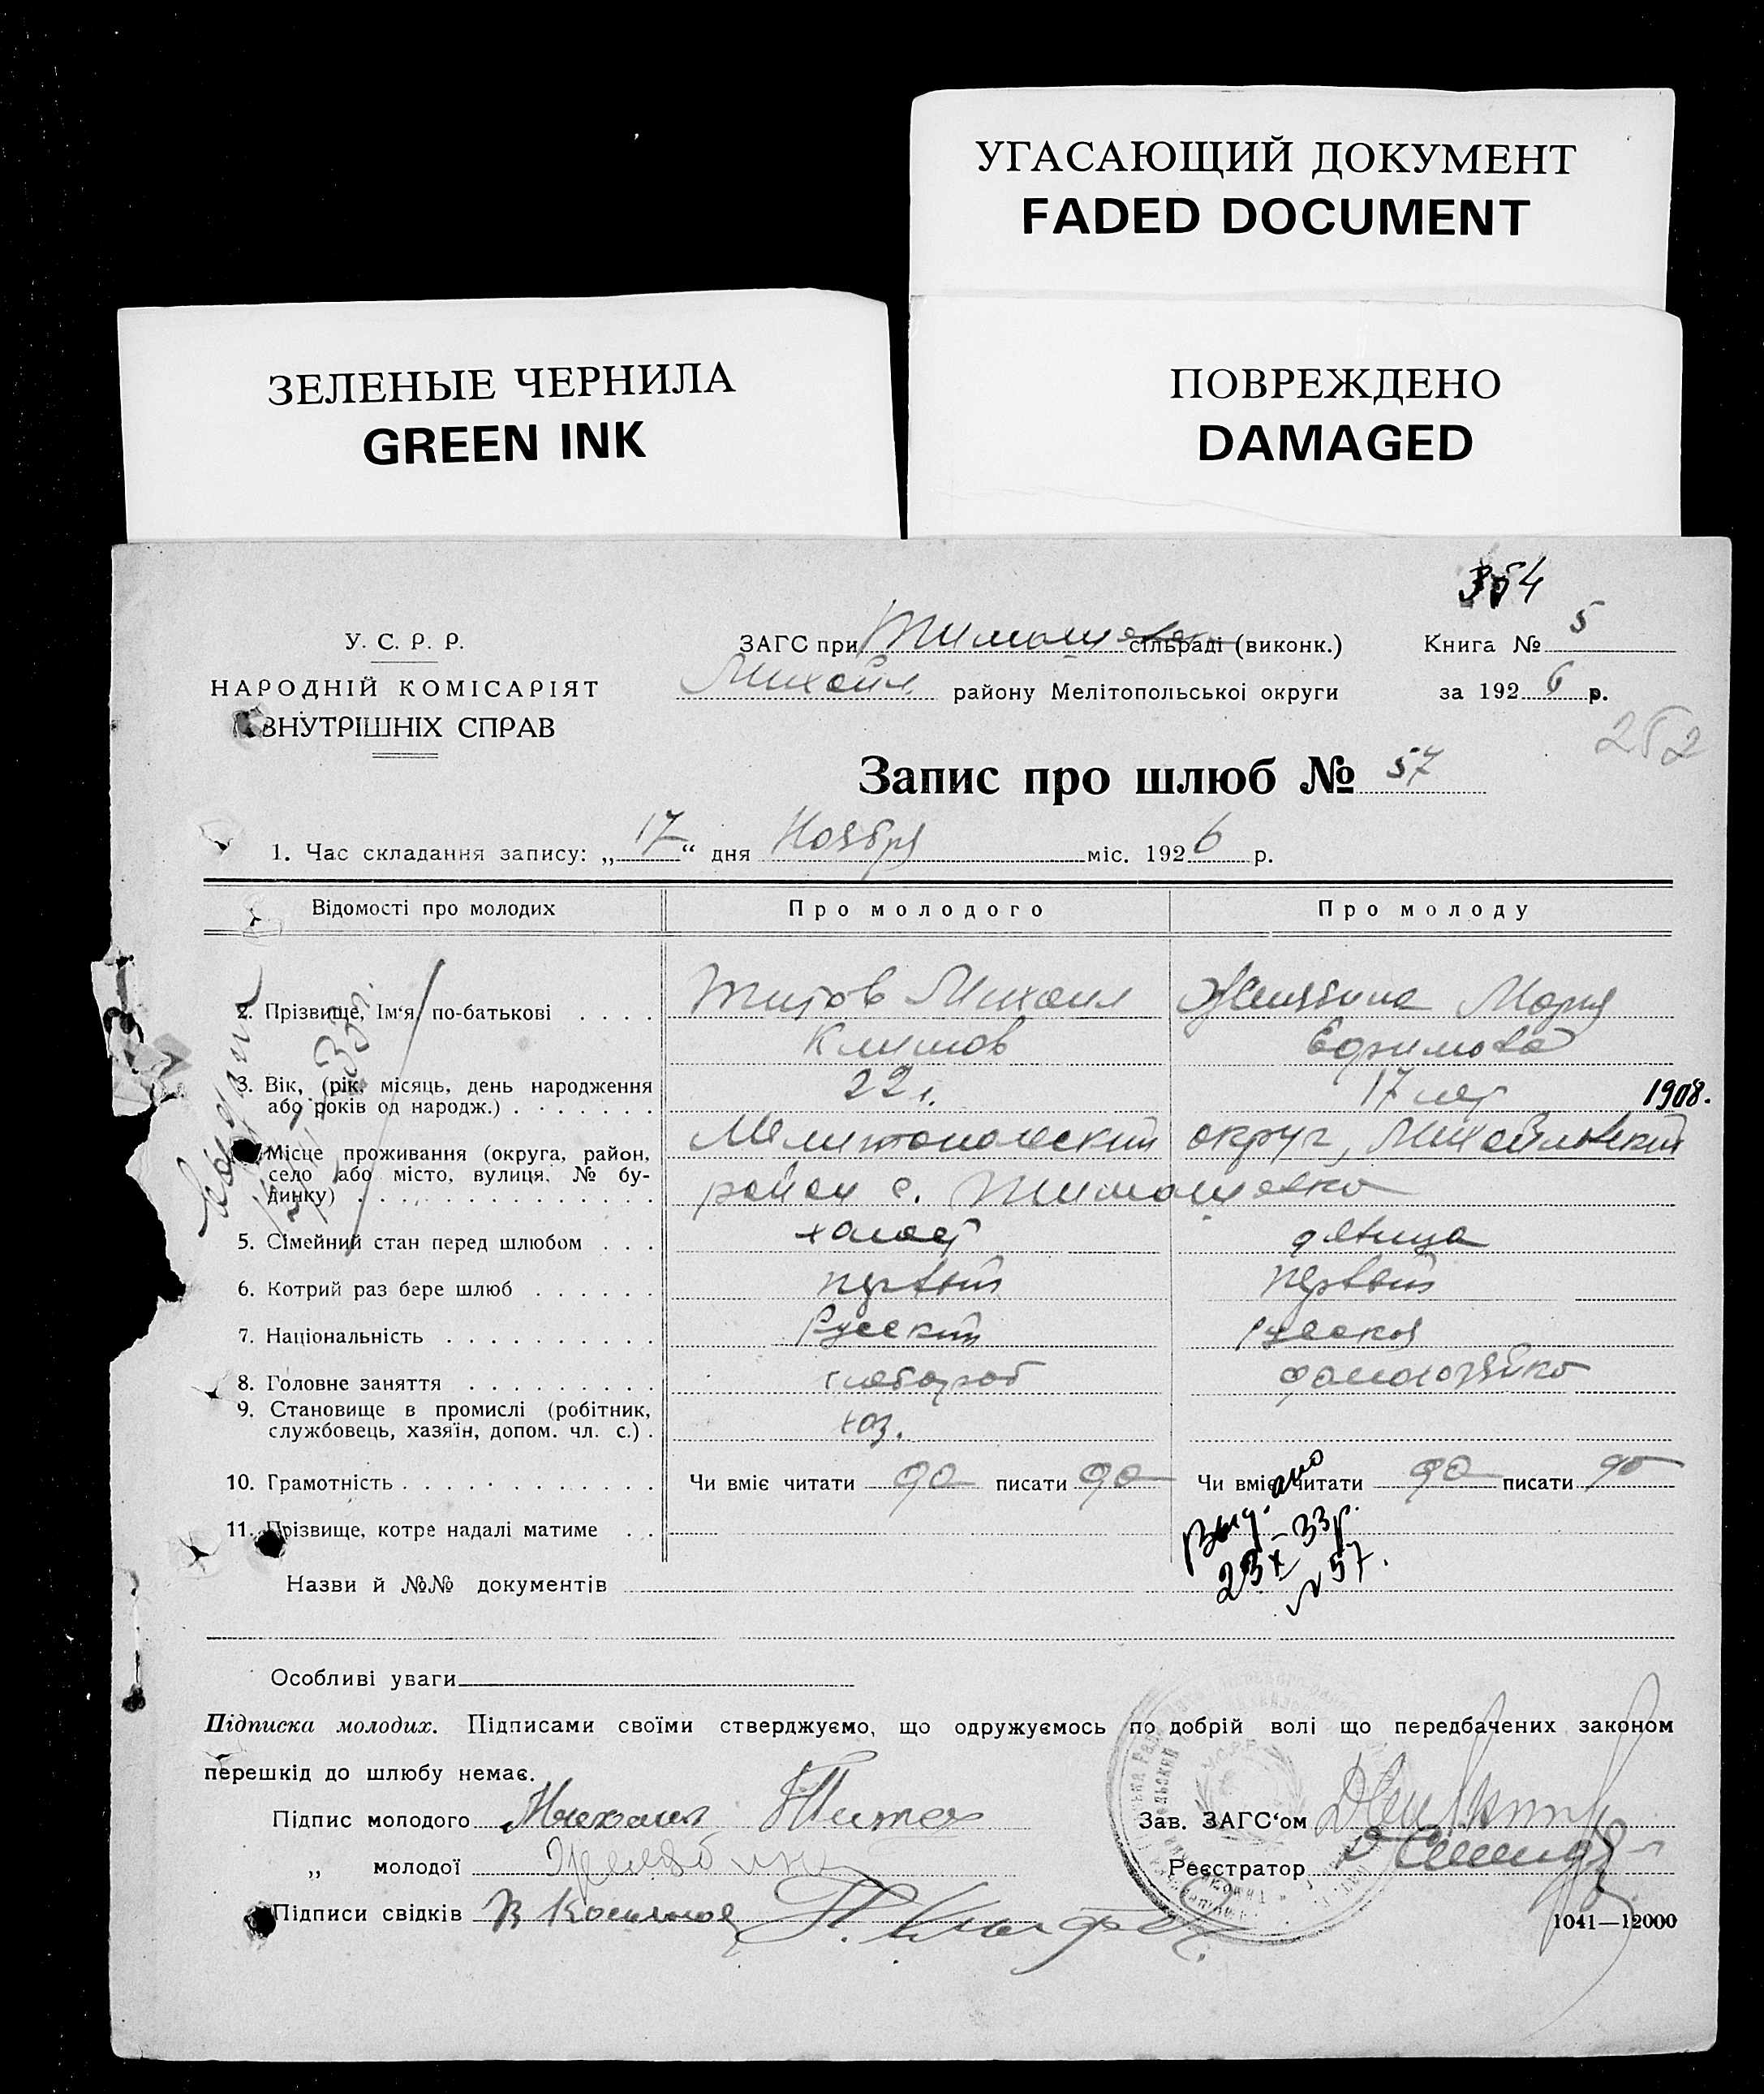 УГАСАЮЩИЙ ДОКУМЕНТ
FADED DOCUMENT
ЗЕЛЕНЫЕ ЧЕРНИЛА
GREEN INK
ПОВРЕЖДЕНО
DAMAGED
354
У. С. Р. Р.
НАРОДНІЙ КОМІСАРІЯТ
ВНУТРІШНІХ СПРАВ
ЗАГС при Тимошевск сільраді (виконк.)
Михайл. району Мелітопольської округи
Книга № 5
за 1926 р.
252
Запис про шлюб № 57
1. Час складання запису: „17“ дня Ноября міс. 1926 р.
Відомості про молодих Про молодого Про молоду
2. Прізвище, Ім'я, по-батькові . . . . Титов Михаил Мария
Климов Ефимова
3. Вік, (рік, місяць, день народження
або років од народж.) . . . . . . . 22 г. 17 лет 1908.
Місце проживання (округа, район,
село або місто, вулиця, № бу-
динку) . . . . . . . . . . . . . . .
Мелитопольский округ, Михайловский
район с. Тимошевка
5. Сімейний стан перед шлюбом . . . холост девица
6. Котрий раз бере шлюб . . . . . . первый первый
7. Національність . . . . . . . . . . Русский русская
8. Головне заняття . . . . . . . . . хлебороб домохозяйка
9. Становище в промислі (робітник,
службовець, хазяїн, допом. чл. с.) . хоз.
10. Грамотність . . . . . . . . . . . . Чи вміє читати да писати да Чи вміє читати да писати да
11. Прізвище, котре надалі матиме . .
Выдано
23 X – 33 р.
№ 57.
Назви й №№ документів
Особливі уваги
Підписка молодих. Підписами своїми стверджуємо, що одружуємось по добрій волі що передбачених законом
перешкід до шлюбу немає.
Підпис молодого Михаил Титов
„ молодої
Зав. ЗАГС'ом
Реєстратор
Підписи свідків
1041—12000